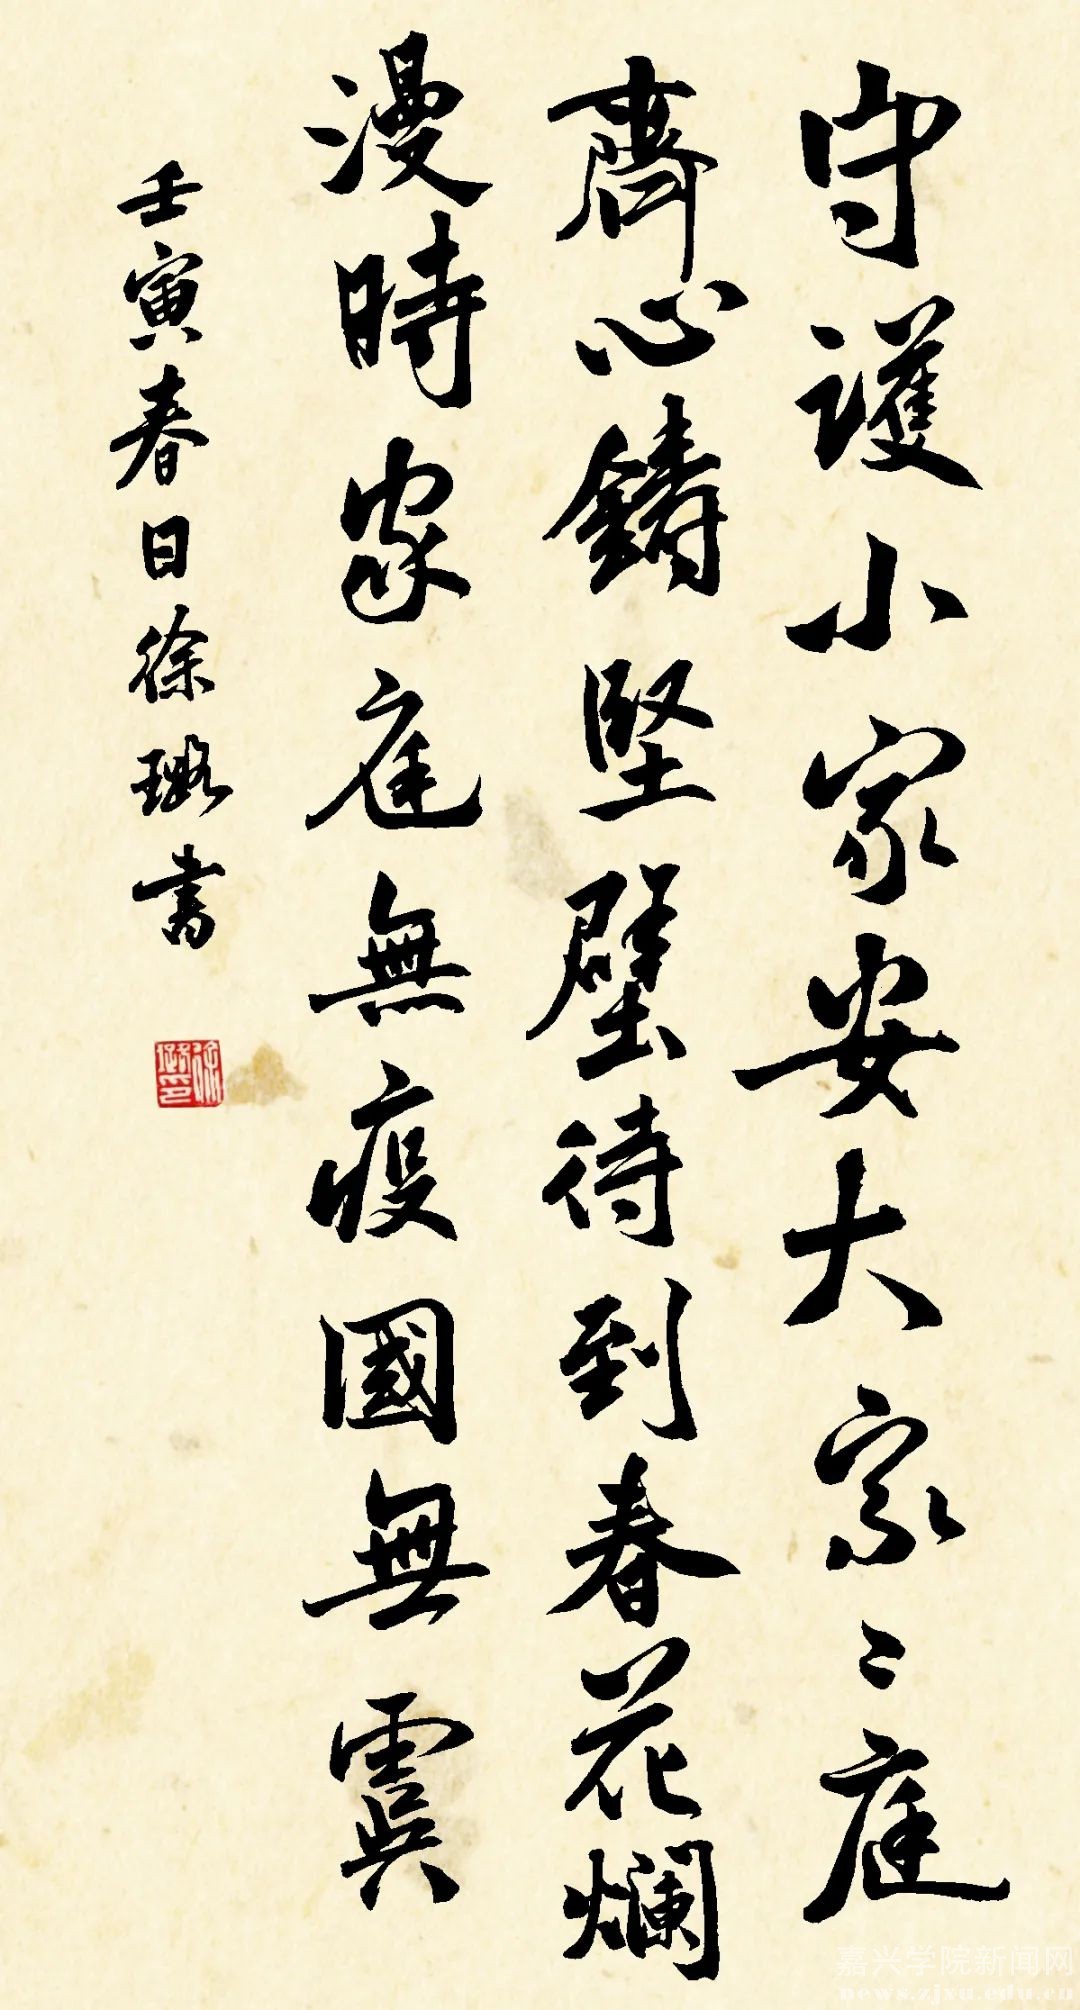 守護小家安大家〻庭
齊心鑄堅壁待到春花爛
漫時家庭無疫國無虞
壬寅春日徐璐書
徐璐印
嘉兴学院新闻网
news.zjxu.edu.cn